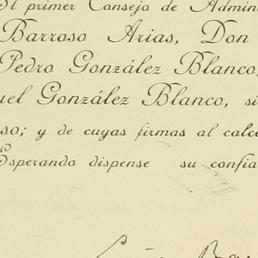 El primer Consejo de Admin
Barroso Arias, Don
Pedro González Blanco,
uel González Blanco, si
so; y de cuyas firmas al calce
Esperando dispense su confia